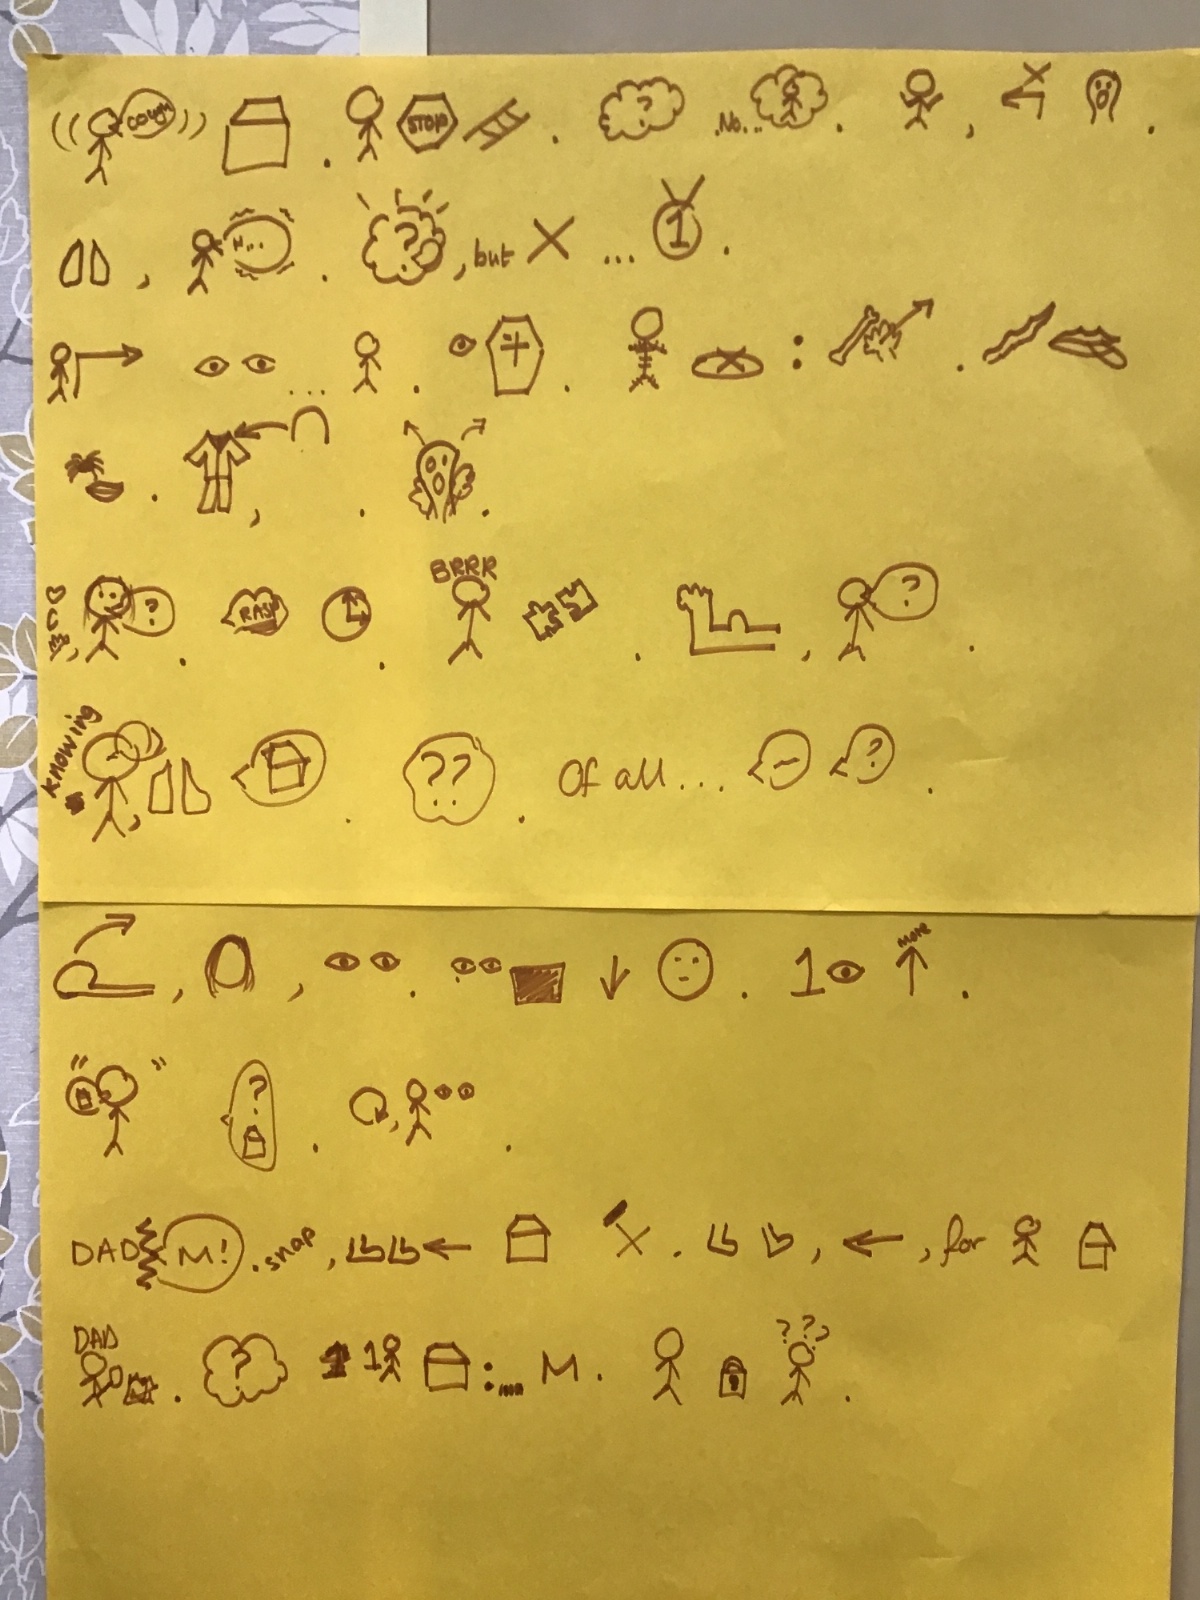 COUGH STOP ? . No... .
M... ? , but X ... 1 .
BRRR
? . RASP . . , ? .
knowing ?? . Of all... - ? .
more
1 .
? .
DAD M! . snap , , for
DAD ???
. ? 1 : ... M . .